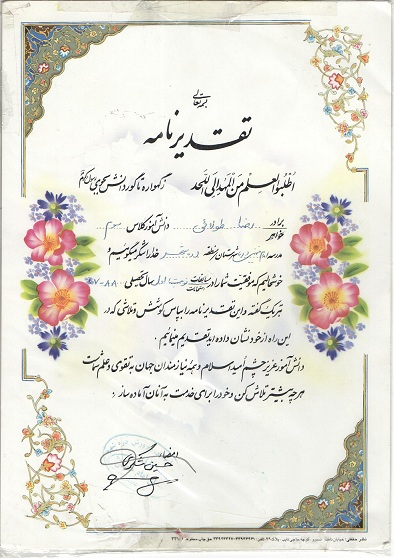 بسمه تعالی
تقدیرنامه
اُطْلُبُوا الْعِلْمَ مِنَ الْمَهْدِ اِلَی اللَّحَد
زگهواره تا گور دانش بجوی رسول اکرم
برادر
خواهر
رضا طولابی دانش آموز کلاس سوم
مدرسه شهرستان / منطقه خدا را شکر میکنیم و
خوشحالیم که موفقیت شما را در مسابقات
امتحانات
نوبت اول سال تحصیلی ۸۸-۸۷
تبریک گفته و این تقدیرنامه را بپاس کوشش و تلاشی که در
این راه از خود نشان داده اید تقدیم مینمائیم.
دانش آموز عزیز چشم امید اسلام و همه نیازمندان جهان به تقوی و علم شماست
هر چه بیشتر تلاش کن و خود را برای خدمت به آنان آماده ساز
امضاء